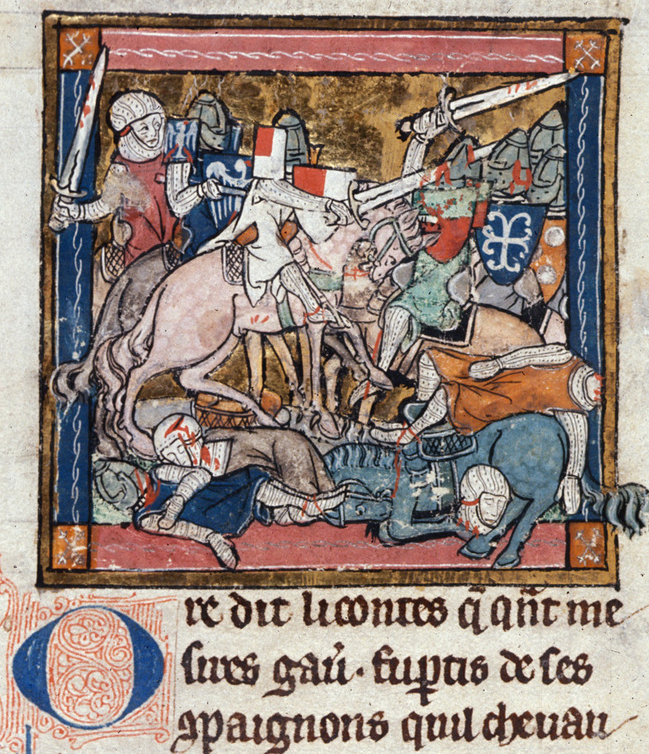 Ore dit li contes q̃ qñt me
sires gau᷉. fu ꝑtis de ses
ꝯpaignons quil cheuau